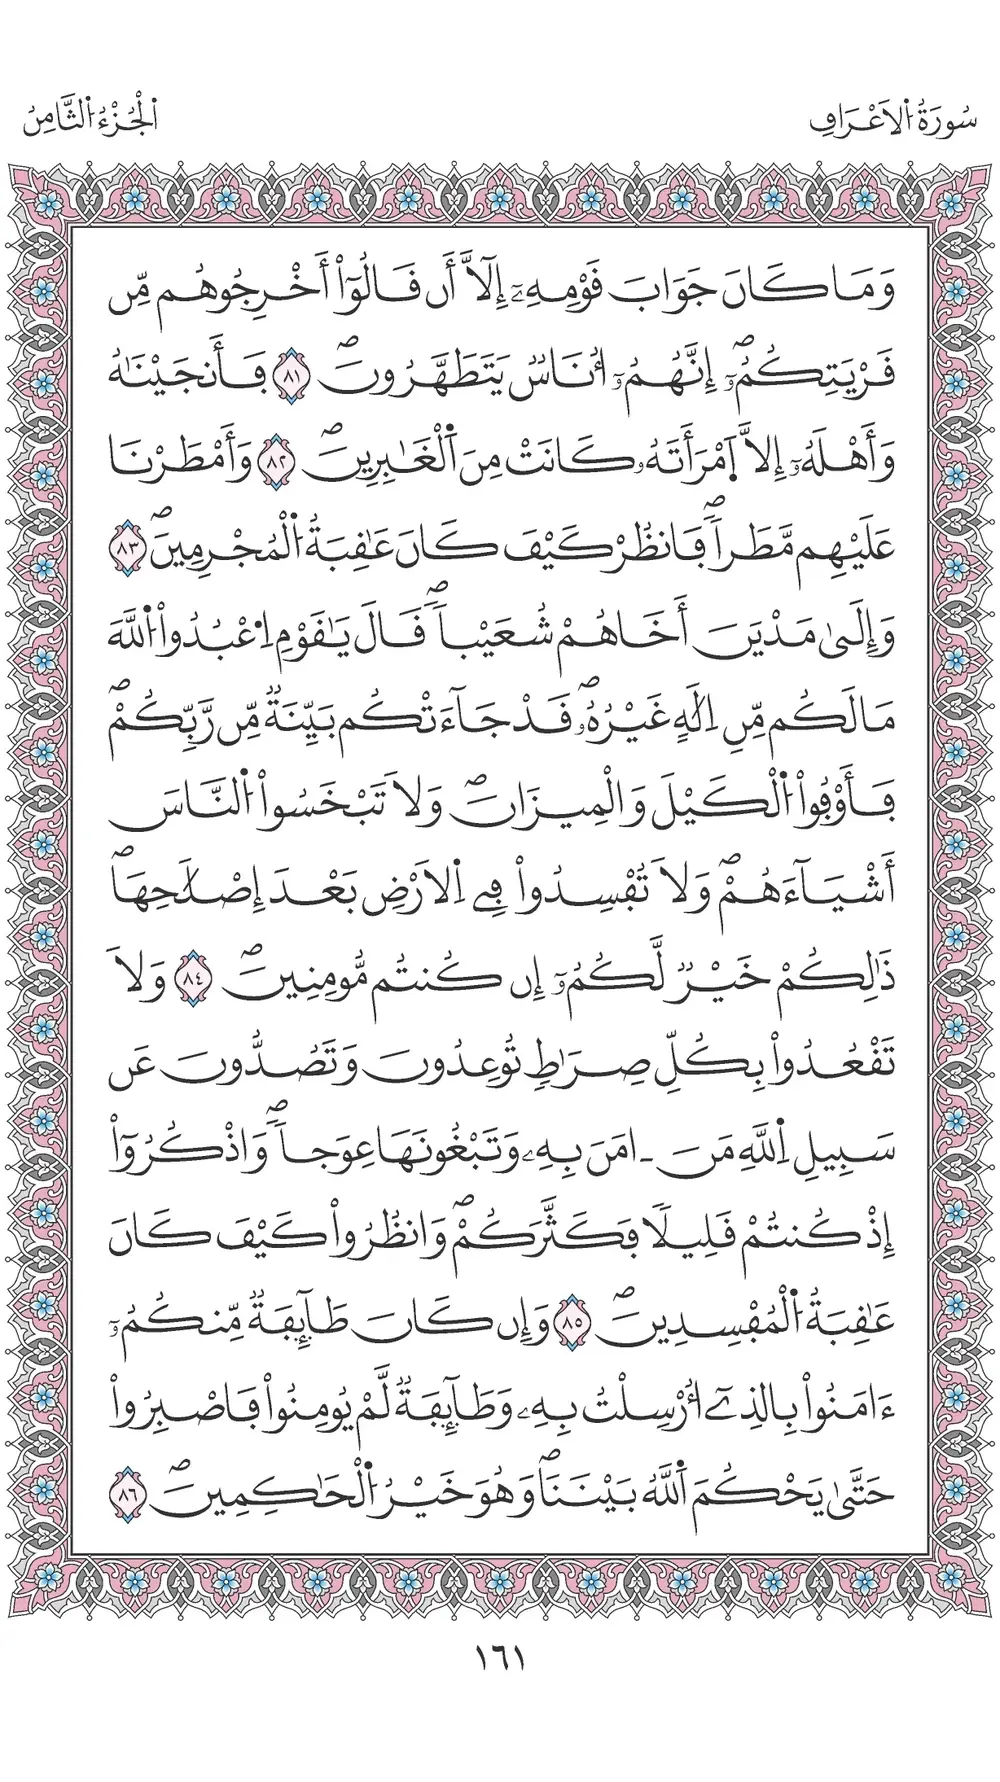 سُورَةُ اُ۬لَاعْرَافِ
اَ۬لْجُزْءُ اُ۬لثَّامِنُ
وَمَا كَانَ جَوَابَ قَوْمِهِۦٓ إِلَّآ أَن قَالُوٓاْ أَخْرِجُوهُم مِّن
قَرْيَتِكُمُۥٓۖ إِنَّهُمُۥٓ أُنَاسٞ يَتَطَهَّرُونَۖ ٨١ فَأَنجَيْنَٰهُ
وَأَهْلَهُۥٓ إِلَّا اَ۪مْرَأَتَهُۥ كَانَتْ مِنَ اَ۬لْغَٰبِرِينَۖ ٨٢ وَأَمْطَرْنَا
عَلَيْهِم مَّطَراٗۖ فَانظُرْ كَيْفَ كَانَ عَٰقِبَةُ اُ۬لْمُجْرِمِينَۖ ٨٣
وَإِلَىٰ مَدْيَنَ أَخَاهُمْ شُعَيْباٗۖ قَالَ يَٰقَوْمِ اِ۟عْبُدُواْ اُ۬للَّهَ
مَا لَكُم مِّنِ اِلَٰهٍ غَيْرُهُۥۖ قَدْ جَآءَتْكُم بَيِّنَةٞ مِّن رَّبِّكُمْۖ
فَأَوْفُواْ اُ۬لْكَيْلَ وَالْمِيزَانَۖ وَلَا تَبْخَسُواْ اُ۬لنَّاسَ
أَشْيَآءَهُمْۖ وَلَا تُفْسِدُواْ فِے اِ۬لَارْضِ بَعْدَ إِصْلَٰحِهَاۖ
ذَٰلِكُمْ خَيْرٞ لَّكُمُۥٓ إِن كُنتُم مُّومِنِينَۖ ٨٤ وَلَا
تَقْعُدُواْ بِكُلِّ صِرَٰطٖ تُوعِدُونَ وَتَصُدُّونَ عَن
سَبِيلِ اِ۬للَّهِ مَنَ ـ امَنَ بِهِۦ وَتَبْغُونَهَا عِوَجاٗۖ وَاذْكُرُوٓاْ
إِذْ كُنتُمْ قَلِيلاٗ فَكَثَّرَكُمْۖ وَانظُرُواْ كَيْفَ كَانَ
عَٰقِبَةُ اُ۬لْمُفْسِدِينَۖ ٨٥ وَإِن كَانَ طَآئِفَةٞ مِّنكُمُۥٓ
ءَامَنُواْ بِالذِےٓ أُرْسِلْتُ بِهِۦ وَطَآئِفَةٞ لَّمْ يُومِنُواْ فَاصْبِرُواْ
حَتَّىٰ يَحْكُمَ اَ۬للَّهُ بَيْنَنَاۖ وَهُوَ خَيْرُ اُ۬لْحَٰكِمِينَۖ ٨٦
١٦١